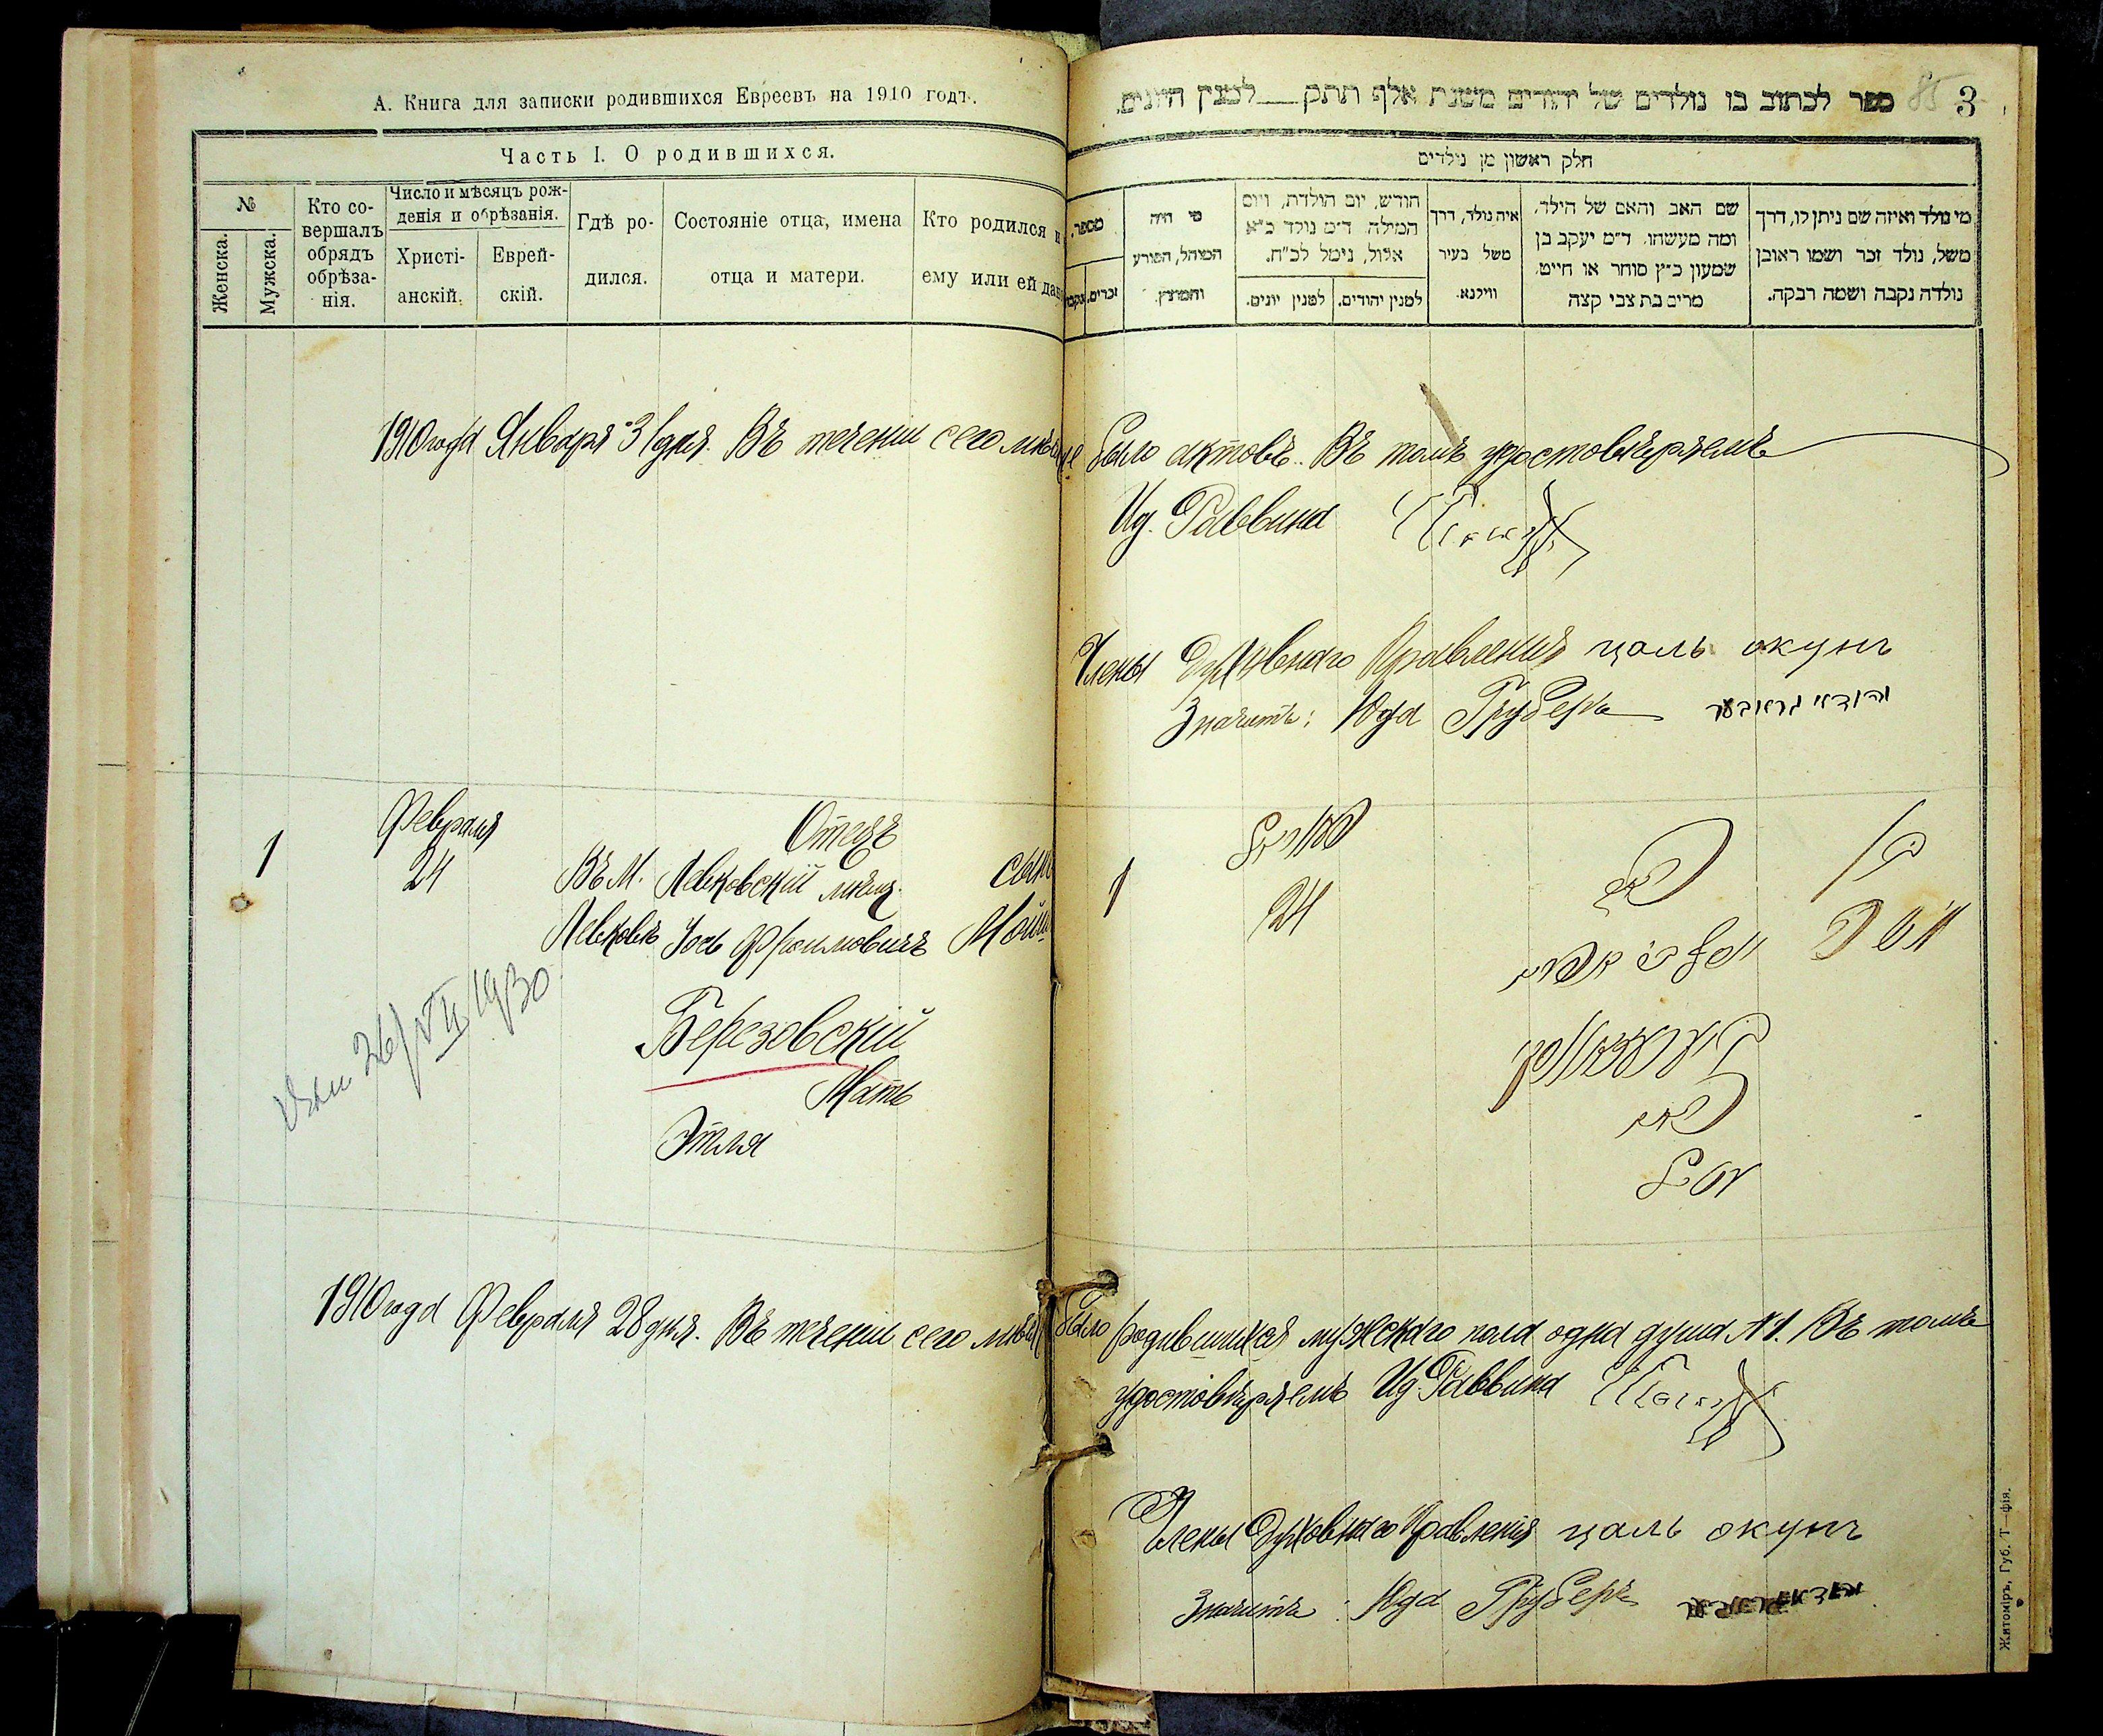 А. Книга для записки родившихся Евреевъ на 1910 годъ.
Часть I. О родившихся.
№
Женска.
Мужска.
Кто со-
вершалъ
обрядъ
обрѣза-
нія.
Число и мѣсяцъ рож-
денія и обрѣзанія.
Христі-
анскій.
Еврей-
скій.
Гдѣ ро-
дился.
Состояніе отца, имена
отца и матери.
Кто родился и
ему или ей дан
1910 года Января 31 дня. Въ теченіи сего мѣся
1
Февраля
24
Въ М.
Левковѣ
Отецъ
Левковскій мѣщ.
Іось Фроимовичъ
Березовскій
Мать
Этля
сынъ
Мойш
26/VII 1930
1910 года Февраля 28 дня. Въ теченіи сего мѣся
ספר לכתוב בו נולדים של יהודים משנת אלף תתק למנין היונים.
85 3
חלק ראשון מן נולדים
מספר.
זכרים.
נקבות
מי היה
המוהל, הפורע
והמוצץ.
חודש, יום הולדת, ויום
המילה ד״מ נולד כ״א
אלול, נימל לכ״ח.
למנין יונים.
למנין יהודים.
איה נולד, דרך
משל בעיר
ווילנא.
שם האב והאם של הילד,
ומה מעשהו. ד״מ יעקב בן
שמעון כ״ץ סוחר או חייט,
מרים בת צבי קצה
מי נולד ואיזה שם ניתן לו, דרך
משל, נולד זכר ושמו ראובן
נולדה נקבה ושמה רבקה.
было актовъ. Въ томъ удостовѣряемъ
Ид. Раввина
Члены Духовнаго Правленія цаль окунь
Значитъ: Юда Груберъ
1
24
было родившихся мужскаго пола одна душа №1. Въ томъ
удостовѣряемъ Ид. Раввина
Члены Духовнаго Правленія цаль окунь
Значитъ: Юда Груберъ
Житоміръ, Губ. Т—фія.